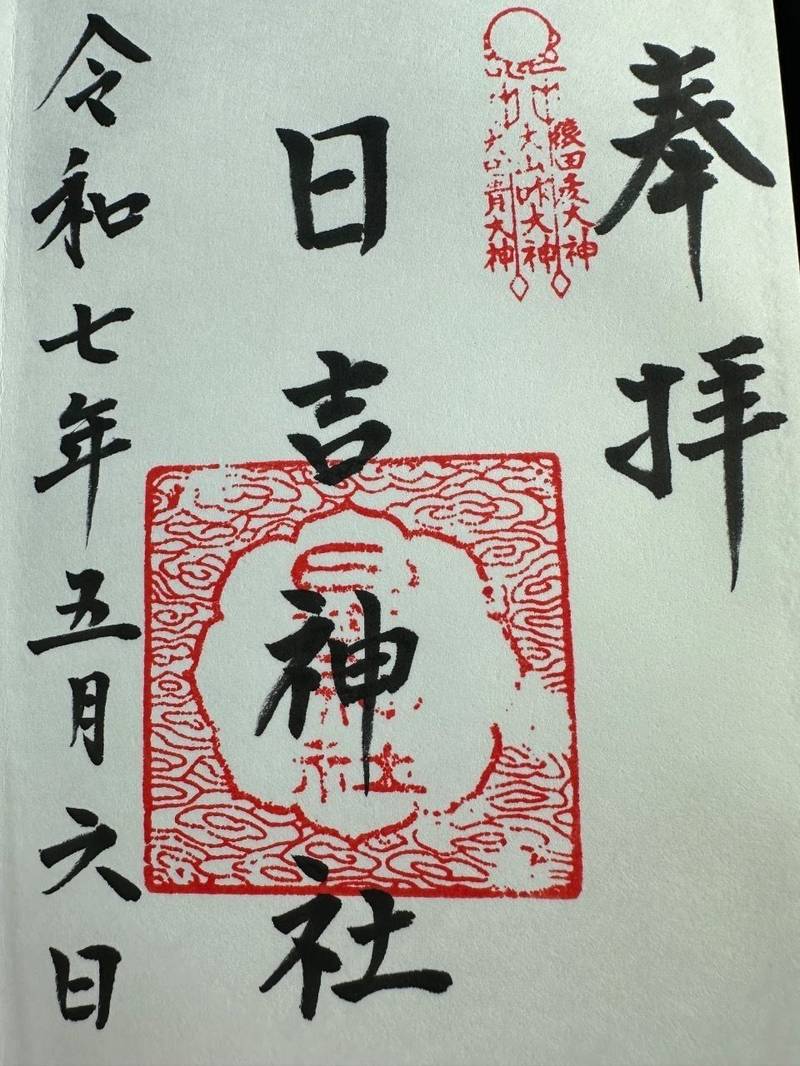 奉拝
猿田彦大神
大山咋大神
大己貴大神
日吉神社
令和七年五月六日